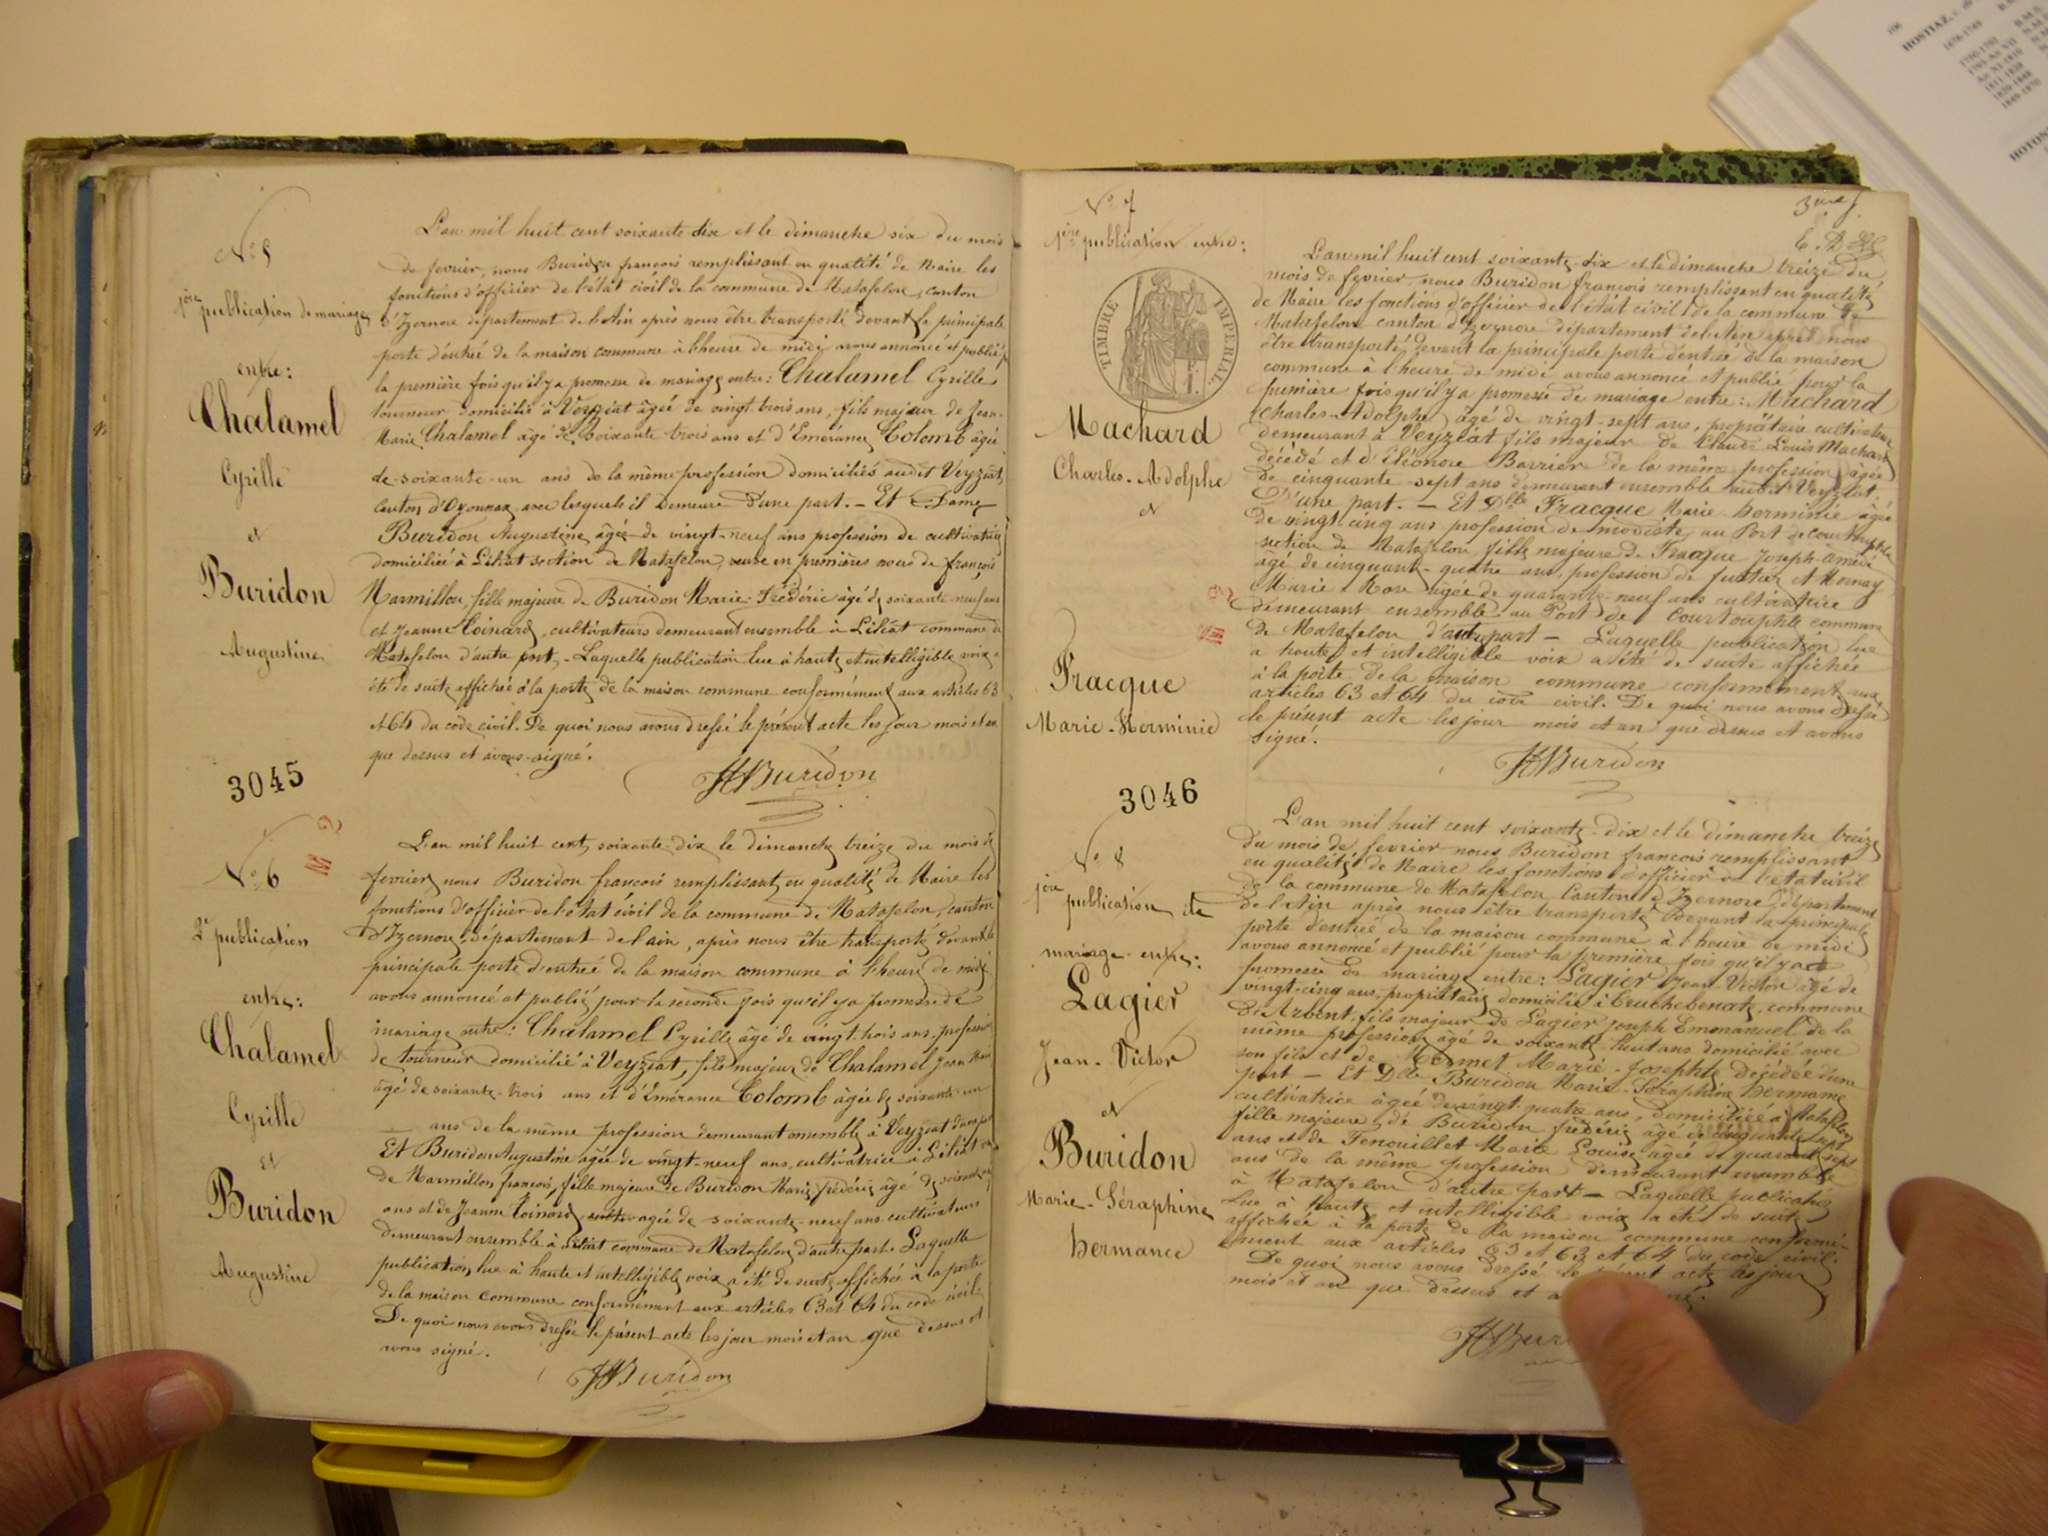 N° 5
1ère publication de mariage
entre:
Chalamel
Cyrille
et
Buridon
Augustine
L'an mil huit cent soixante dix et le dimanche six du mois
de fevrier, nous Buridon francois remplissant en qualité de Maire les
fonctions d'officier de l'état civil de la commune de Matafelon, canton
d'Izernore département de l'ain après nous être transporté devant la principale
porte d'entrée de la maison commune à l'heure de midi avons annoncé et publié p
la première fois qu'il y a promesse de mariage entre: Chalamel Cyrille
tourneur domicilié à Veyziat âgé de vingt-trois ans, fils majeur de Jean-
Marie Chalamel âgé de soixante trois ans et d'Emérance Colomb âgée
de soixante-un ans de la même profession domiciliés audit Veyziat,
canton d'Oyonnax avec lesquels il demeure d'une part. - Et Dame
Buridon Augustine âgée de vingt-neuf ans profession de cultivatrice
domiciliée à Liliat section de Matafelon, veuve en premières noces de françois
Marmillon, fille majeure de Buridon Marie-Frédéric âgé de soixante-neuf ans
et Jeanne Coinard, cultivateurs demeurant ensemble à Liliat commune de
Matafelon d'autre part. - Laquelle publication lue à haute et intelligible voix a
été de suite affichée à la porte de la maison commune conformément aux articles 63
et 64 du code civil. De quoi nous avons dressé le présent acte les jour mois et an
que dessus et avons signé.
Buridon
3045
M 2
N° 6
2e publication
entre:
Chalamel
Cyrille
et
Buridon
Augustine
L'an mil huit cent soixante-dix le dimanche treize du mois de
fevrier nous Buridon francois remplissant en qualité de Maire les
fonctions d'officier de l'état civil de la commune de Matafelon, canton
d'Izernore, département de l'ain, après nous être transporté devant la
principale porte d'entrée de la maison commune à l'heure de midi
avons annoncé et publié pour la seconde fois qu'il y a promesse de
mariage entre: Chalamel Cyrille âgé de vingt-trois ans, profession
de tourneur domicilié à Veyziat, fils majeur de Chalamel Jean Marie
âgé de soixante-trois ans et d'Emérance Colomb âgée de soixante-un
ans de la même profession demeurant ensemble à Veyziat d'une part
Et Buridon Augustine agée de vingt-neuf ans, cultivatrice à Liliat
de Marmillon françois, fille majeure de Buridon Marie frédéric âgé de soixante neuf
ans et de Jeanne Coinard agée de soixante-neuf ans cultivateurs
demeurant ensemble à Liliat commune de Matafelon d'autre part. Laquelle
publication lue à haute et intelligible voix a été de suite affichée à la porte
de la maison commune conformément aux articles 63 et 64 du code civil.
De quoi nous avons dressé le présent acte les jour mois et an que dessus et
avons signé.
Buridon
N° 7
1ère publication entre:
TIMBRE IMPERIAL.
Machard
Charles-Adolphe
et
Fracque
Marie-Herminie
M 2
3me f.
L'an mil huit cent soixante-dix et le dimanche treize du
mois de fevrier, nous Buridon francois remplissant en qualité
de Maire les fonctions d'officier de l'état civil de la commune de
Matafelon canton d'Izernore département de l'ain après nous
être transporté devant la principale porte d'entrée de la maison
commune à l'heure de midi avons annoncé et publié pour la
première fois qu'il y a promesse de mariage entre: Machard
Charles-Adolphe âgé de vingt-sept ans, propriétaire cultivateur
demeurant à Veyziat fils majeur de Claude Louis Machard
décédé et d'Eléonore Barrier de la même profession, âgée
de cinquante-sept ans demeurant ensemble audit Veyziat
d'une part. - Et Dlle Fracque Marie-Herminie âgée
de vingt cinq ans profession de modiste, au Port de Courtouphle
section de Matafelon, fille majeure de Fracque Joseph Amédé
âgé de cinquante-quatre ans, profession de et Mornay
Marie Rose agée de quarante-neuf ans cultivatrice
demeurant ensemble au Port de Courtouphle commune
de Matafelon d'autre part - Laquelle publication lue
a haute et intelligible voix a été de suite affichée
à la porte de la maison commune conformément aux
articles 63 et 64 du code civil. De quoi nous avons dressé
le présent acte les jour mois et an que dessus et avons
signé.
Buridon
3046
N° 8
1ère publication de
mariage entre:
Lagier
Jean-Victor
et
Buridon
Marie-Séraphine
hermance
L'an mil huit cent soixante-dix et le dimanche treize
du mois de fevrier nous Buridon francois remplissant
en qualité de Maire les fonctions d'officier de l'état civil
de la commune de Matafelon Canton d'Izernore, département
de l'Ain après nous être transporté devant la principale
porte d'entrée de la maison commune à l'heure de midi
avons annoncé et publié pour la première fois qu'il y a
promesse de mariage entre: Lagier Jean-Victor âgé de
vingt-cinq ans, propriétaire domicilié à commune
d'Arbent, fils majeur de Lagier Joseph Emmanuel de la
même profession âgé de soixante-huit ans domicilié avec
son fils et de Mermet Marie-Josephte décédée d'une
part - Et Dlle Buridon Marie-Séraphine hermance
cultivatrice âgée de vingt-quatre ans, domiciliée à Matafelon
fille majeure de Buridon frédéric âgé de cinquante sept
ans et de Fenouillet Marie Louise agée de quarante sept
ans de la même profession demeurant ensemble
à Matafelon d'autre part - Laquelle publication
lue à haute et intelligible voix a été de suite
affichée à la porte de la maison commune conformé-
ment aux articles 63 et 63 et 64 du code civil.
De quoi nous avons dressé le présent acte les jour
mois et an que dessus et
Buri
HOSTIAZ,